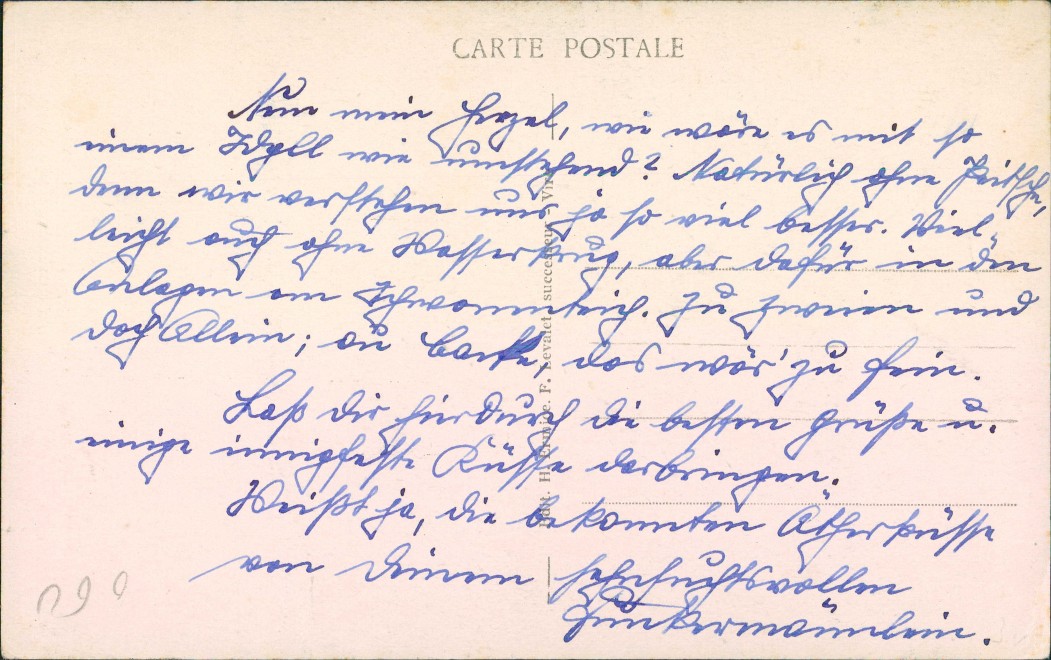 CARTE POSTALE
Nun mein Herzel, wie wäre es mit so
einem Idyll wie umstehend? Natürlich ohne Peitsche,
denn wir verstehen uns ja so viel besser. Viel-
leicht auch ohne Wasserkrug, aber dafür in den
Anlagen am Schwanenteich. Zu zweien und
doch Allein; au backe, das wär' zu fein.
Laß dir hierdurch die besten Grüße u.
einige innigheste Küsse darbringen.
Weißt ja, die bekannten Ätherküsse
von Deinem sehnsuchtsvollen
Funkermännlein.
Edit. H. Ermice. F. Levalet, successeur - Vire